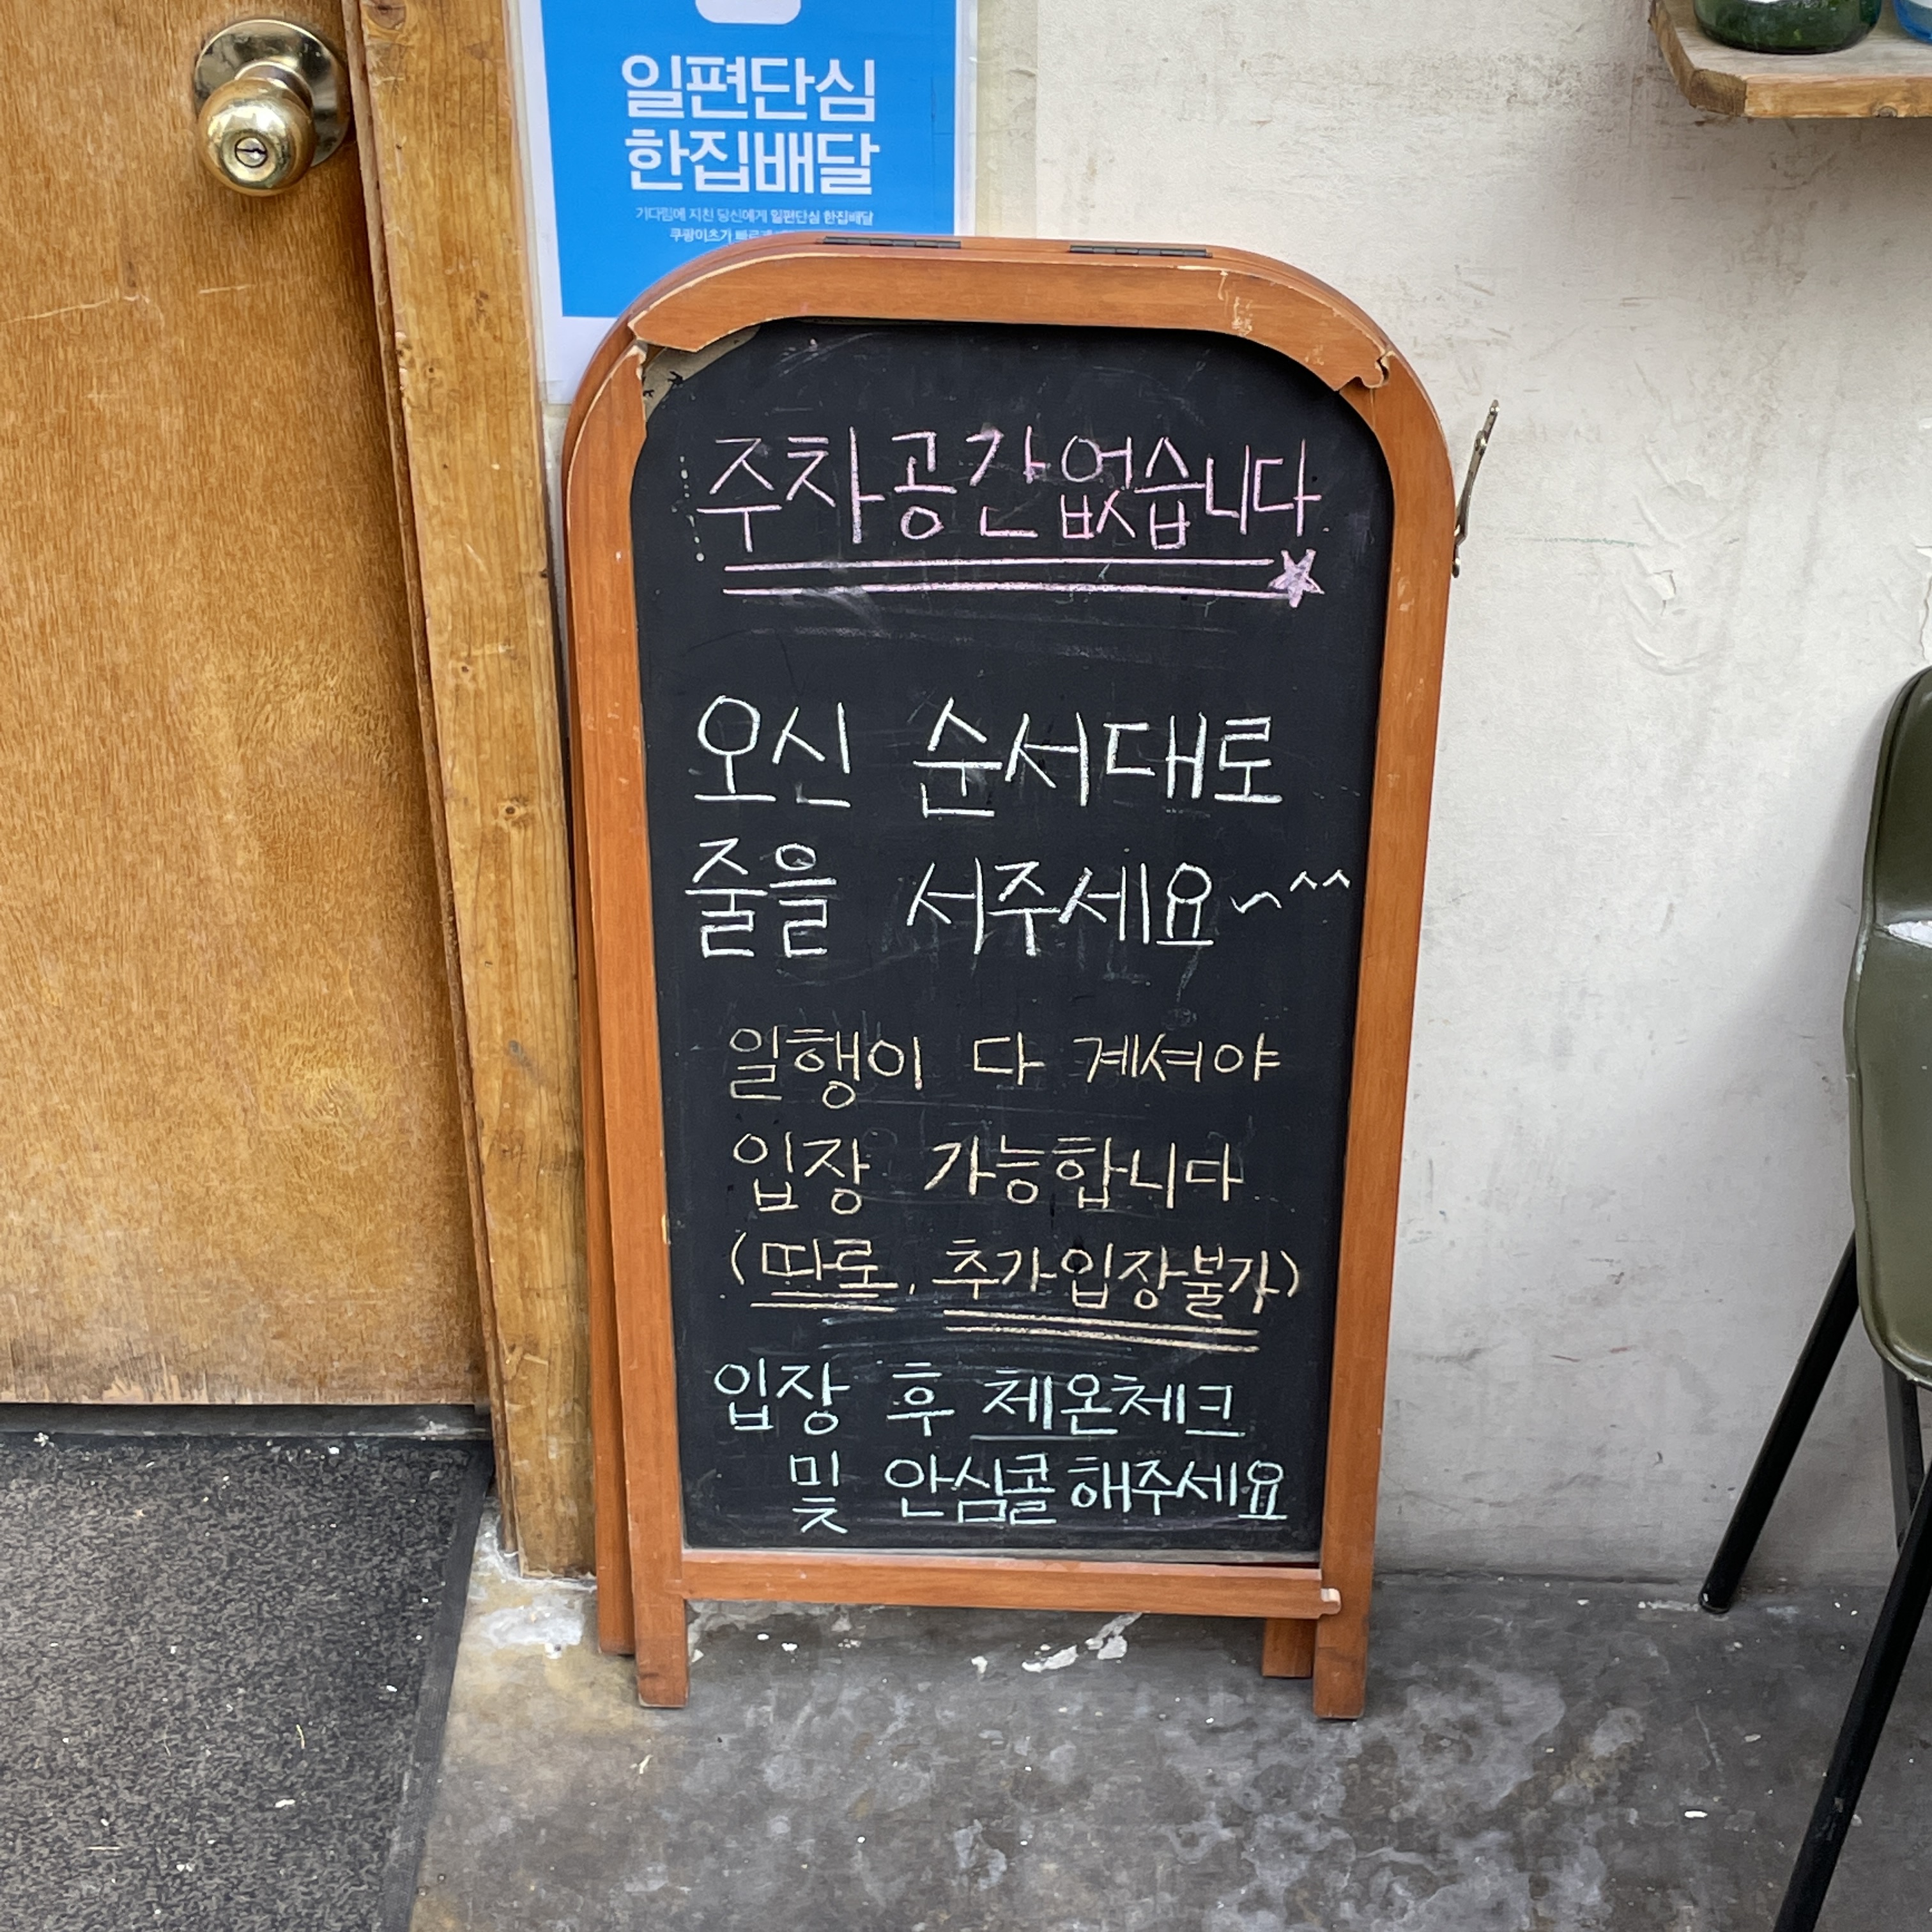 일편단심
한집배달
기다림에 지친 당신에게 일편단심 한집배달
쿠팡이츠가
주차공간없습니다
오신 순서대로
줄을 서주세요~^^
일행이 다 계셔야
입장 가능합니다
(따로, 추가입장불가)
입장 후 체온체크
및 안심콜해주세요